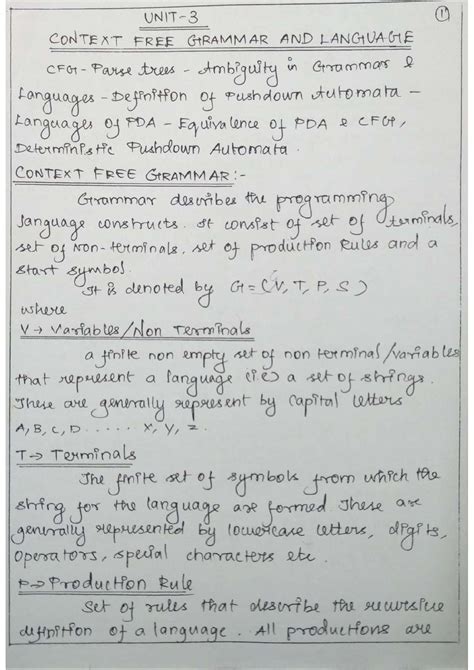 UNIT-3
1
CONTEXT FREE GRAMMAR AND LANGUAGE
CFG - Parse trees - Ambiguity in Grammar &
Languages - Definition of Pushdown Automata -
Languages of PDA - Equivalence of PDA & CFG,
Deterministic Pushdown Automata.
CONTEXT FREE GRAMMAR:-
Grammar describes the programming
language constructs. It consist of set of terminals,
set of non-terminals, set of production Rules and a
start symbol.
It is denoted by G=(V, T, P, S)
where
V → Variables/Non Terminals
a finite non empty set of non terminal/variables
that represent a language (i.e) a set of strings.
These are generally represent by capital letters
A, B, C, D ..... X, Y, Z.
T → Terminals
The finite set of symbols from which the
string for the language are formed These are
generally represented by lowercase letters, digits,
operators, special characters etc.
P → Production Rule
Set of rules that describe the recursive
definition of a language. All productions are